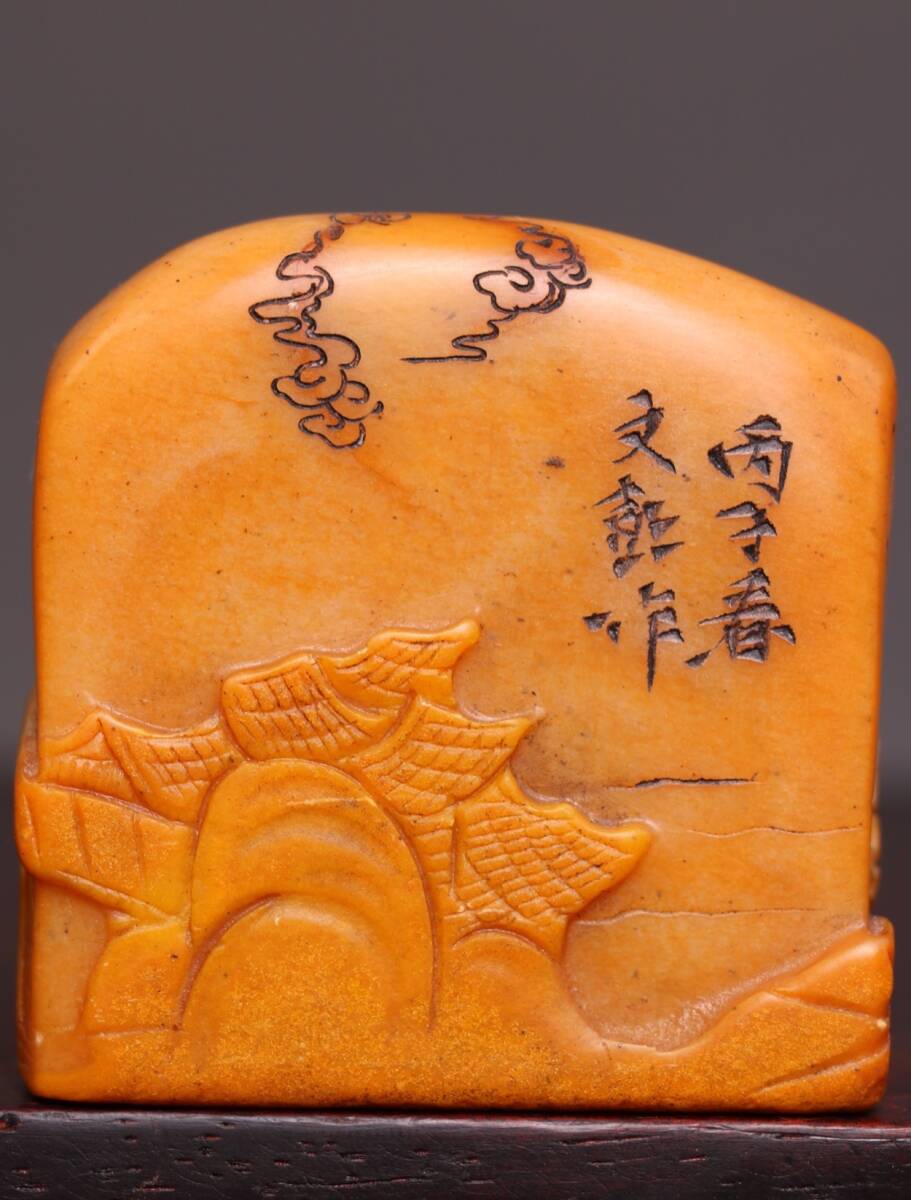 丙子春
文彭作